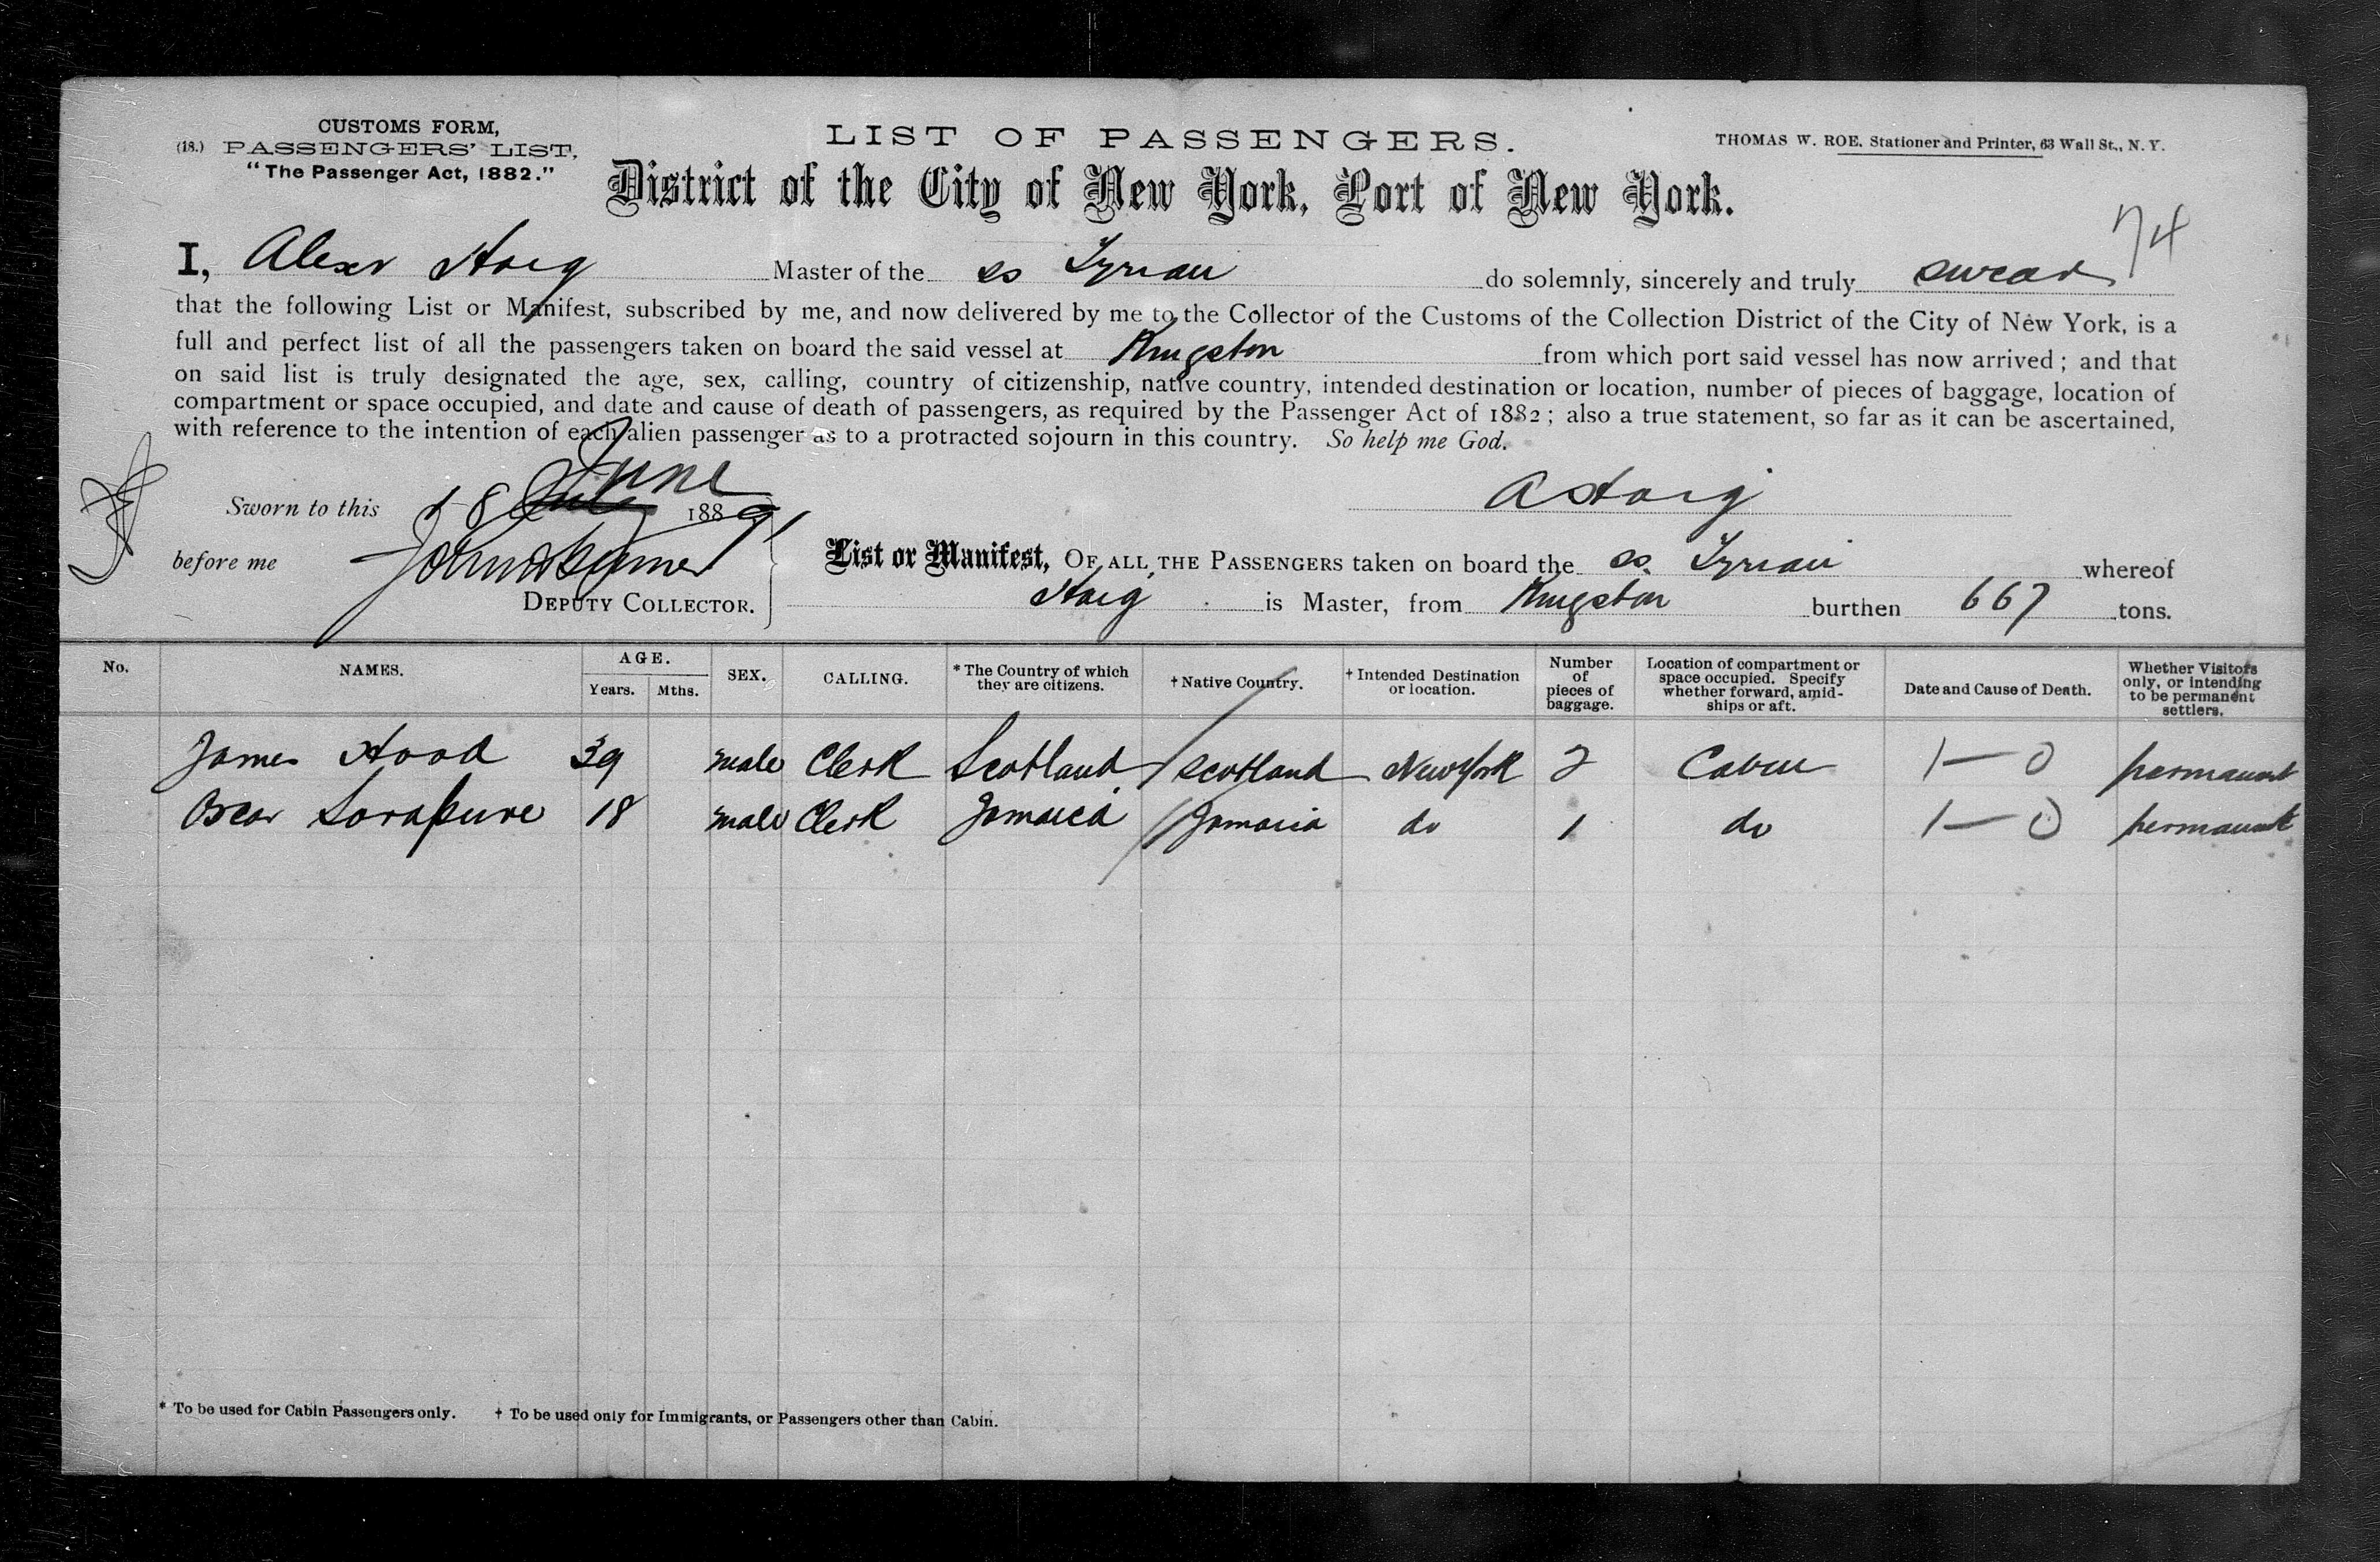 CUSTOMS FORM,
(18.) PASSENGERS' LIST,
"The Passenger Act, 1882."
LIST OF PASSENGERS.
THOMAS W. ROE, Stationer and Printer, 63 Wall St., N. Y.
District of the City of New York, Port of New York.
74
I, Alexr Haig Master of the ss Tyrian do solemnly, sincerely and truly swear
that the following List or Manifest, subscribed by me, and now delivered by me to the Collector of the Customs of the Collection District of the City of New York, is a
full and perfect list of all the passengers taken on board the said vessel at Kingston from which port said vessel has now arrived; and that
on said list is truly designated the age, sex, calling, country of citizenship, native country, intended destination or location, number of pieces of baggage, location of
compartment or space occupied, and date and cause of death of passengers, as required by the Passenger Act of 1882; also a true statement, so far as it can be ascertained,
with reference to the intention of each alien passenger as to a protracted sojourn in this country. So help me God.
Sworn to this 18 June 1889
A Haig
before me
DEPUTY COLLECTOR.
List or Manifest, OF ALL THE PASSENGERS taken on board the ss. Tyrian whereof
Haig is Master, from Kingston burthen 667 tons.
No. NAMES. AGE. Years. Mths. SEX. CALLING. * The Country of which they are citizens. † Native Country. † Intended Destination or location. Number of pieces of baggage. Location of compartment or space occupied. Specify whether forward, amidships or aft. Date and Cause of Death. Whether Visitors only, or intending to be permanent settlers.
James Hood 39 male Clerk Scotland Scotland New York 2 Cabin 1—0 permanent
Oscar Sorapure 18 male Clerk Jamaica Jamaica do 1 do 1—0 permanent
* To be used for Cabin Passengers only. † To be used only for Immigrants, or Passengers other than Cabin.